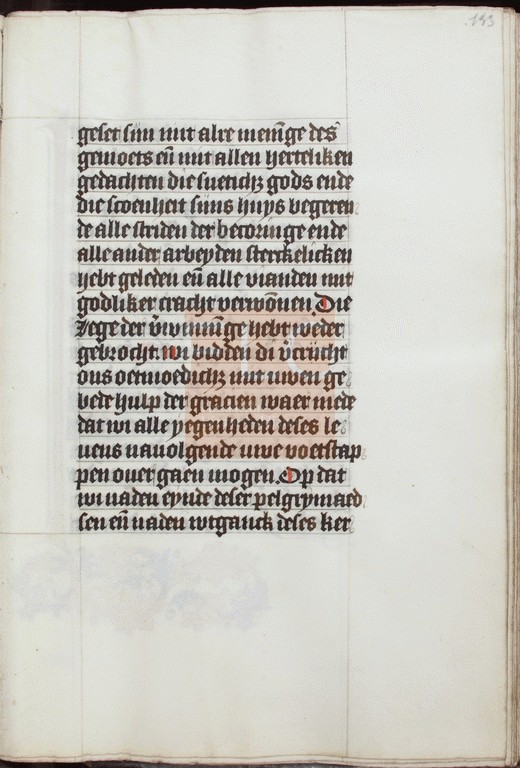 .193
geset sijn mit alre menin̄ge des
gemoets en̄ mit allen hertelíken
gedachten die sueticħz gods ende
die scoenheit sijns huys begeren
de alle striden der becoringe ende
alle ander arbeyden sterckelicken
hebt geleden en̄ alle vianden mit
godliker cracht verwōnen. Die
zege der v̄winnin̄ge hebt weder
gebrocht. wi bidden di v̄crijcht
ons oetmoedicħz mit uwen ge
bede hulp der gracien waer mede
dat wi alle yegenheden deses le
uens nauolgende uwe voetstap
pen ouer gaen mogen. Op dat
wi naden eynde deser pelgrymaed
sen en̄ naden wtganck deses ker